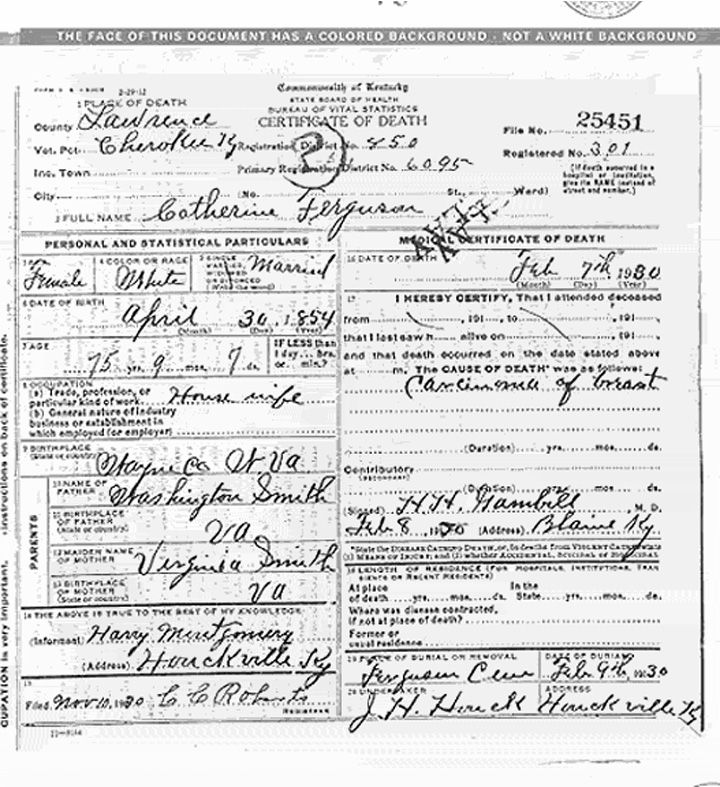 THE FACE OF THIS DOCUMENT HAS A COLORED BACKGROUND - NOT A WHITE BACKGROUND
2-29-12
Commonwealth of Kentucky
STATE BOARD OF HEALTH
BUREAU OF VITAL STATISTICS
CERTIFICATE OF DEATH
1 PLACE OF DEATH
County Lawrence
Vot. Pct. Cherokee Ky Registration District No. 850
File No. 25451
Inc. Town Primary Registration District No. 6095
Registered No. 301
2
City (No. St., Ward)
(If death occurred in a hospital or institution, give its NAME instead of street and number.)
2 FULL NAME Catherine Ferguson
PERSONAL AND STATISTICAL PARTICULARS
Female
4 COLOR OR RACE White
5 SINGLE, MARRIED, WIDOWED OR DIVORCED (Write the word) Married
6 DATE OF BIRTH
April 30, 1854
(Month) (Day) (Year)
7 AGE
75 yrs. 9 mos. 7 ds.
IF LESS than 1 day... hrs. or... min.?
8 OCCUPATION
(a) Trade, profession, or particular kind of work House wife
(b) General nature of industry business or establishment in which employed (or employer)
9 BIRTHPLACE (State or country) Wayne Co W. Va
PARENTS
10 NAME OF FATHER Washington Smith
11 BIRTHPLACE OF FATHER (State or country) Va
12 MAIDEN NAME OF MOTHER Virginia Smith
13 BIRTHPLACE OF MOTHER (State or country) Va
14 THE ABOVE IS TRUE TO THE BEST OF MY KNOWLEDGE
(Informant) Harry Montgomery
(Address) Houckville Ky
15
Filed Nov 10, 1930 C C Roberts
Registrar
MEDICAL CERTIFICATE OF DEATH
16 DATE OF DEATH
Feb 7th 1930
(Month) (Day) (Year)
17 I HEREBY CERTIFY, That I attended deceased
from , 191 , to , 191 ,
that I last saw h alive on , 191 ,
and that death occurred on the date stated above
at m. The CAUSE OF DEATH was as follows:
Carcinoma of breast
(Duration) yrs. mos. ds.
Contributory
(SECONDARY)
(Duration) yrs. mos. ds.
(Signed) H.H. Gambill M. D.
Feb 8 1930 (Address) Blaine Ky
*State the DISEASE CAUSING DEATH, or, in deaths from VIOLENT CAUSES state (1) MEANS OF INJURY; and (2) whether ACCIDENTAL, SUICIDAL or HOMICIDAL
18 LENGTH OF RESIDENCE (FOR HOSPITALS, INSTITUTIONS, TRANSIENTS OR RECENT RESIDENTS)
At place of death yrs. mos. ds. In the State yrs. mos. ds.
Where was disease contracted, if not at place of death?
Former or usual residence
19 PLACE OF BURIAL OR REMOVAL DATE OF BURIAL
Ferguson Cem Feb 9th, 1930
20 UNDERTAKER ADDRESS
J. H. Houck Houckville Ky
OCCUPATION is very important. instructions on back of certificate.